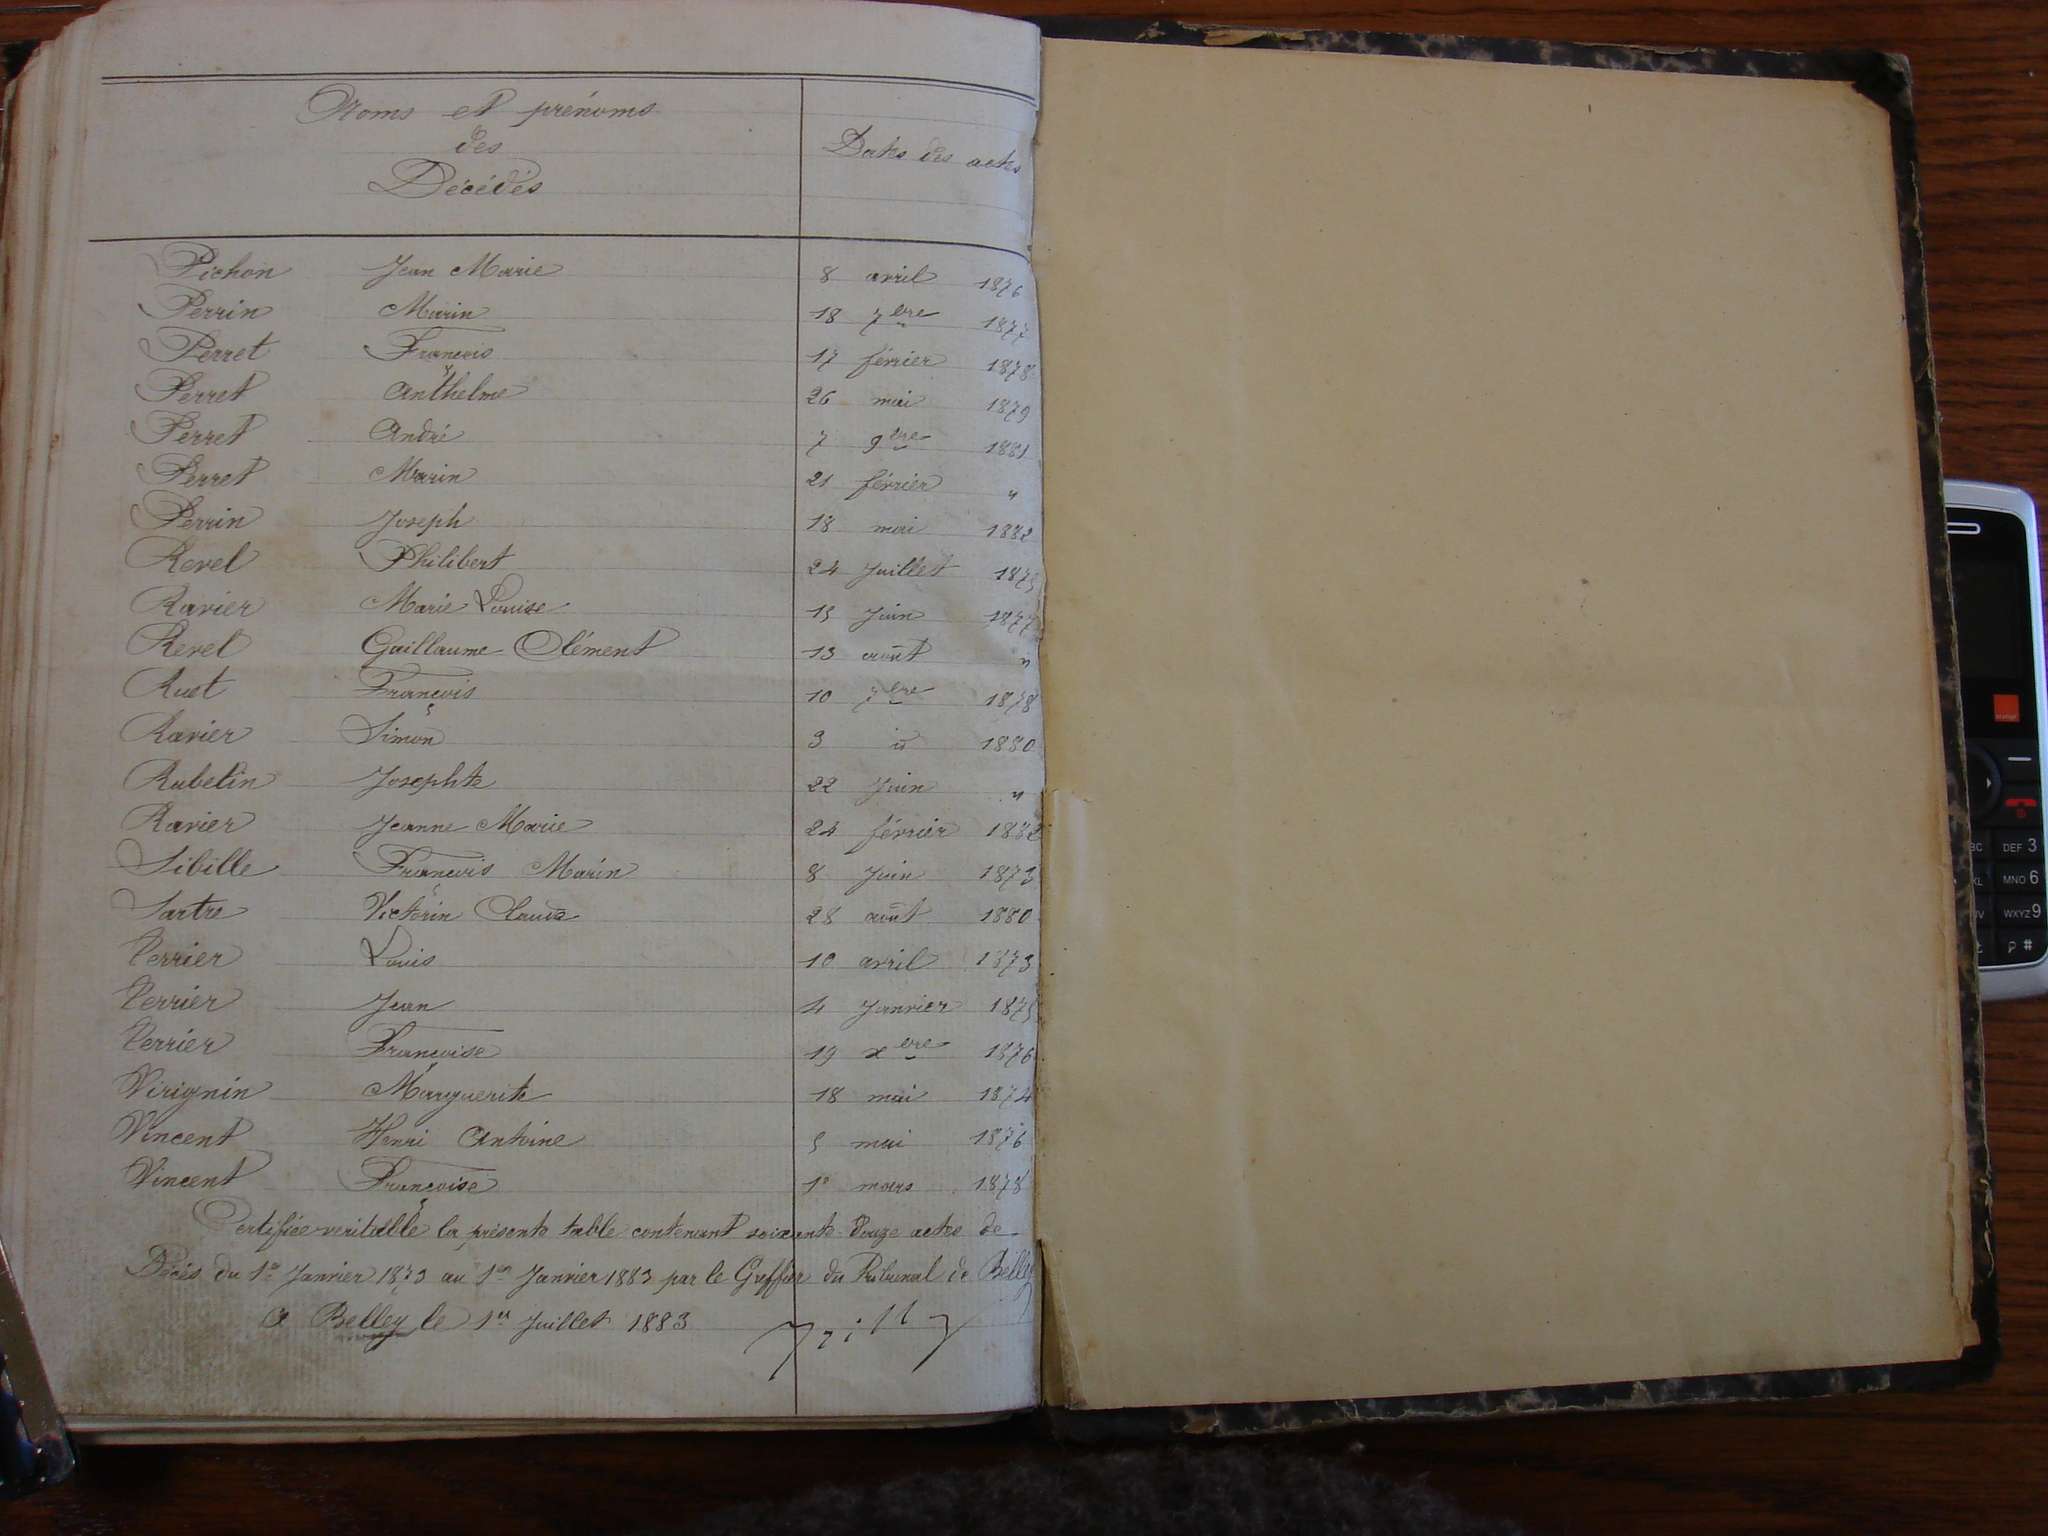 Noms et prénoms
des
Décédés
Dates des actes
Pichon Jean Marie 8 avril 1876
Perrin Marin 18 7bre 1877
Perret François 17 février 1878
Perret Anthelme 26 mai 1879
Perret André 7 9bre 1881
Perret Marin 21 février "
Perrin Joseph 18 mai 1882
Revel Philibert 24 Juillet 1875
Ravier Marie Louise 15 Juin 1877
Revel Guillaume Clément 13 août "
Rust François 10 7bre 1878
Ravier Simon 3 id 1880
Rubelin Josephte 22 Juin "
Ravier Jeanne Marie 24 février 1882
Sibille François Marin 8 Juin 1873
Sartre Victorin Claude 28 août 1880
Verrier Louis 10 avril 1873
Verrier Jean 4 Janvier 1875
Verrier Françoise 19 xbre 1876
Virignin Marguerite 18 mai 1874
Vincent Henri Antoine 5 mai 1876
Vincent Françoise 1er mars 1878
Certifiée veritable la présente table contenant soixante douze actes de
Décès du 1er Janvier 1873 au 1er Janvier 1883 par le Greffier du Tribunal de Belley
A Belley le 1er Juillet 1883
DEF 3
MNO 6
WXYZ 9
#